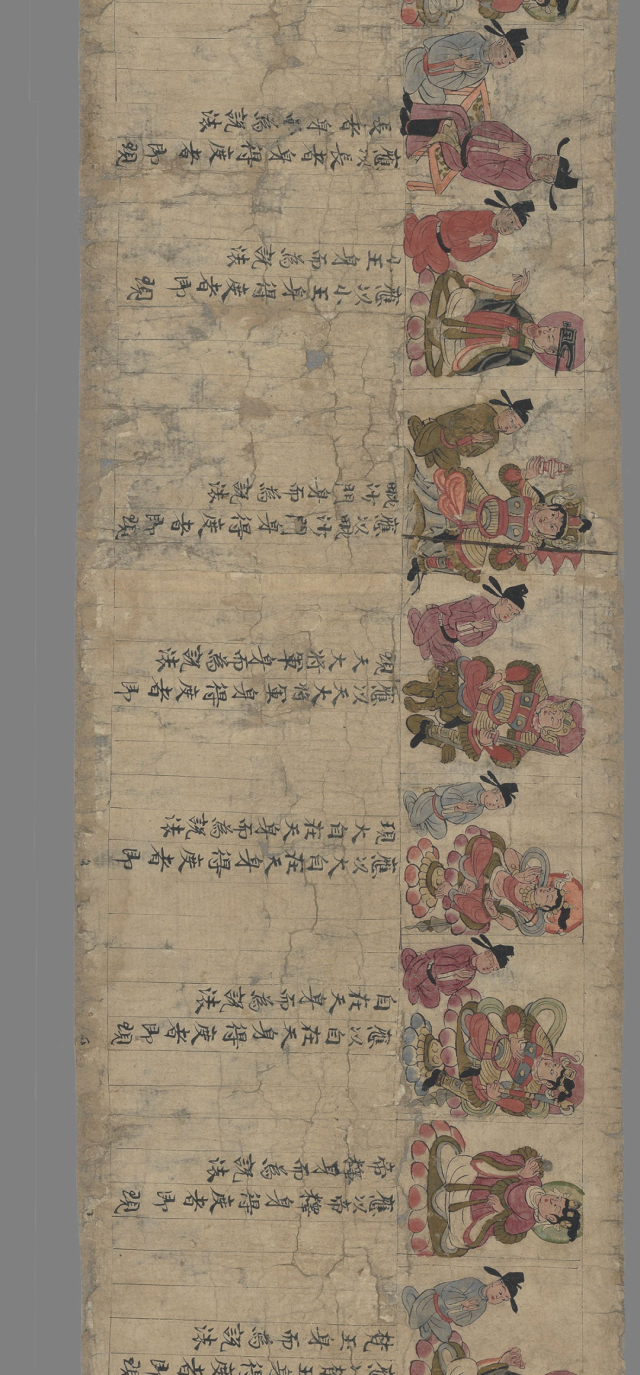 應以梵王身得度者即現
梵王身而為說法
應以帝釋身得度者即現
帝釋身而為說法
應以自在天身得度者即現
自在天身而為說法
應以大自在天身得度者即
現大自在天身而為說法
應以天大將軍身得度者即
現天大將軍身而為說法
應以毗沙門身得度者即現
毗沙門身而為說法
應以小王身得度者即現
小王身而為說法
應以長者身得度者即現
長者身而為說法